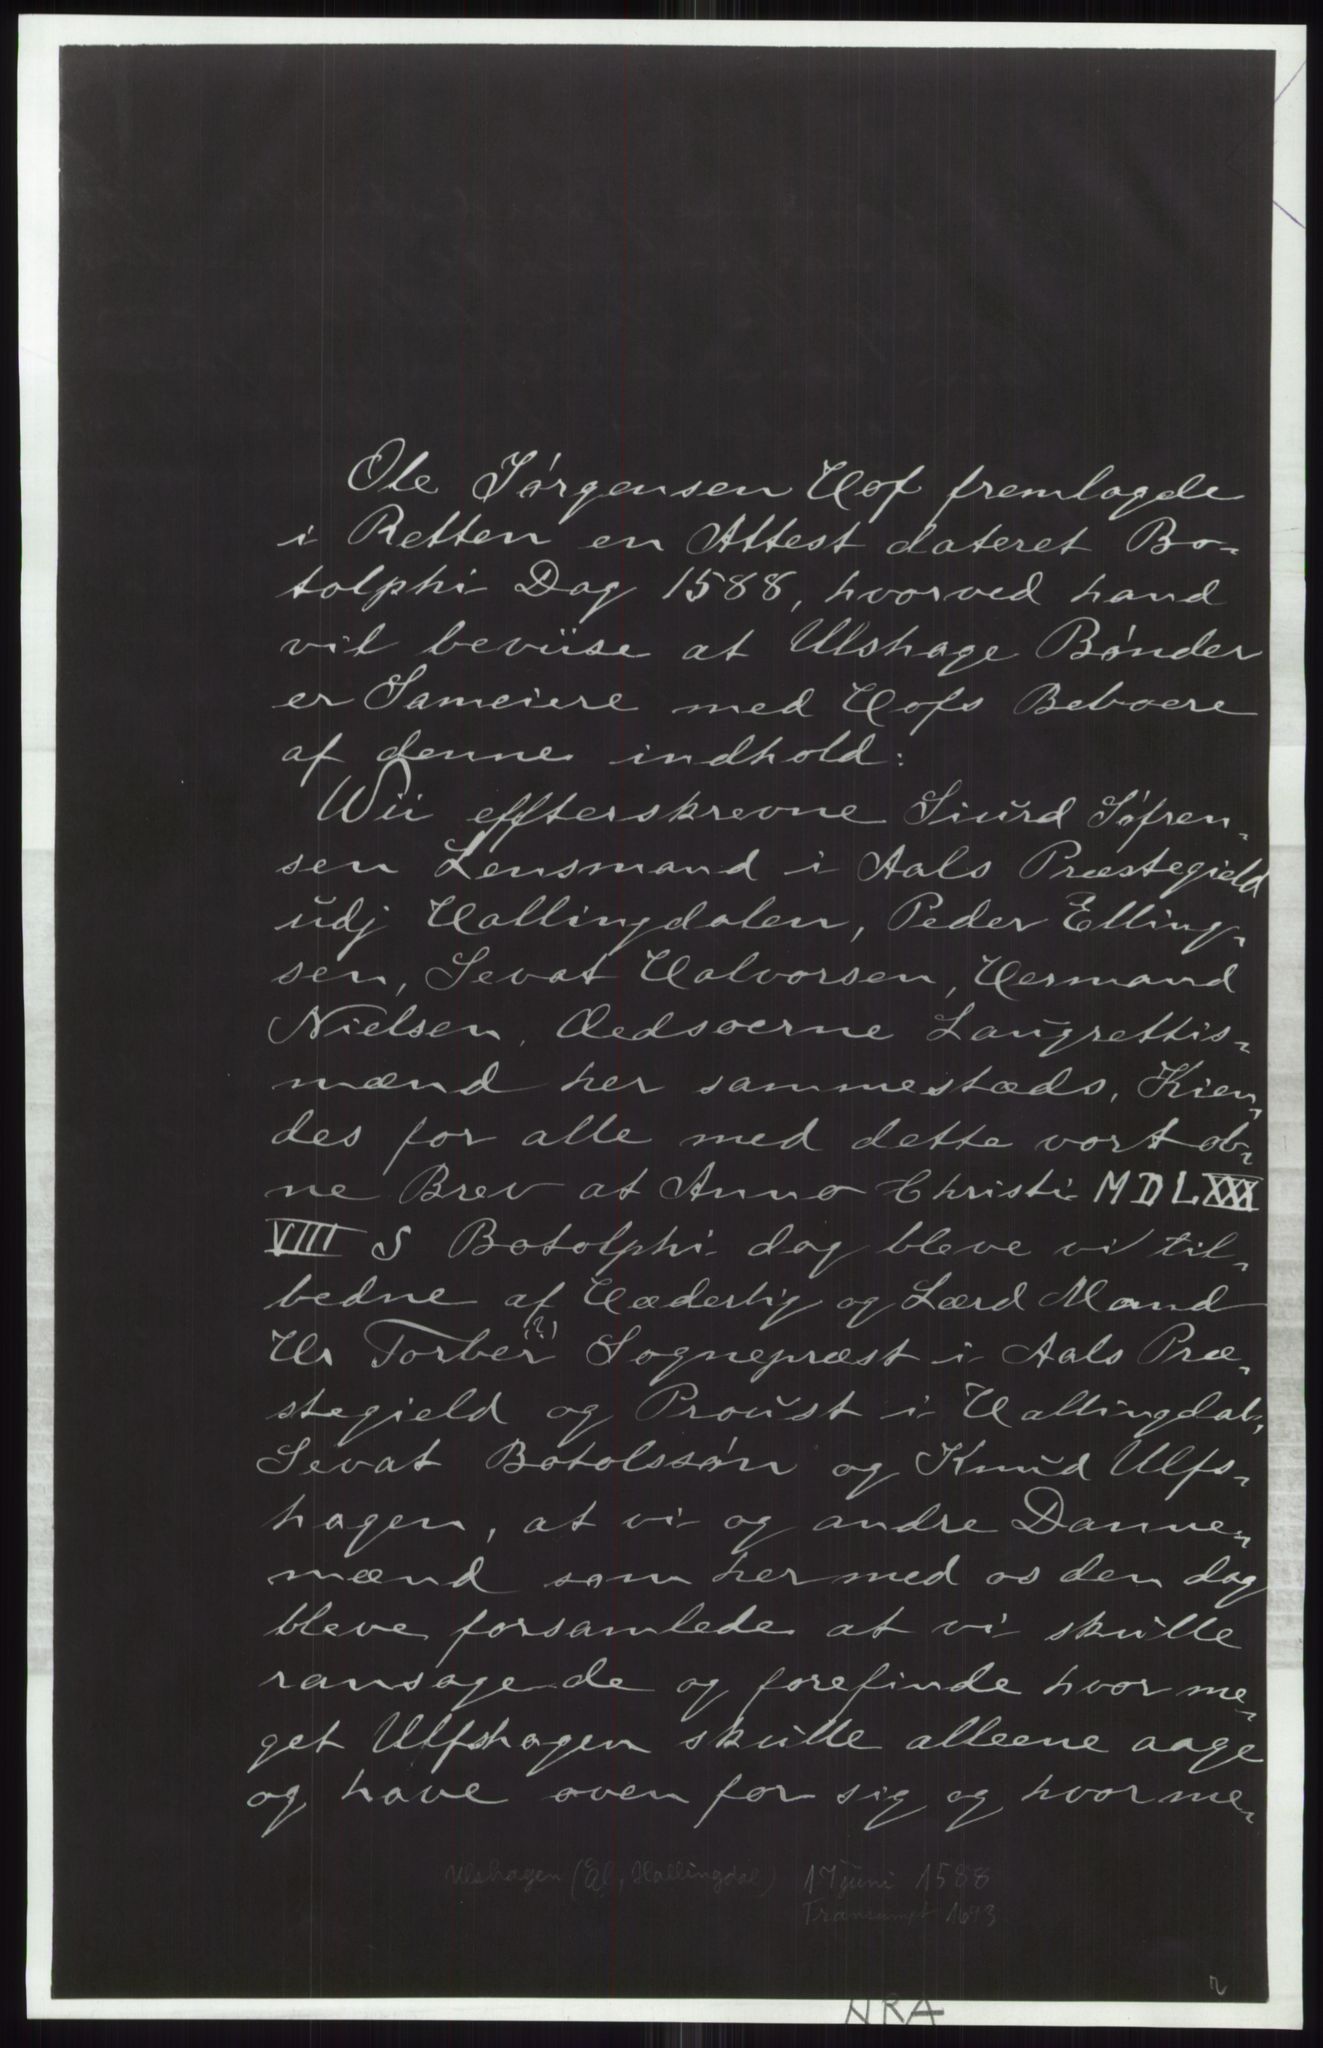 Ole Jørgensen Hof fremlagde
i Retten en Attest dateret Bo-
tolphi Dag 1588, hvorved hand
vil beviise at Ulshage Bønder
er Sameiere med Hofs Beboere
af denne indhold:
Wii effterskrevne Siurd Søfren-
sen Lensmand i Aals Præstegield
udj Hallingdalen, Peder Elling-
sen, Sevat Halvorsen, Hermand
Nielsen, Aedsoerne Laugrettis-
mænd her sammestæds, Kien-
des for alle med dette vort ob-
ne Brev at Anno Christi MDLXXX
VIII S Botolphi dag bleve vi til-
bedne af Hæderlig og Lærd Mand
Hr Torber (?) Sognepræst i Aals Præ-
stegield og Proust i Hallingdal,
Sevat Botolssøn og Knud Ulfs-
hagen, at vi og andre Danne-
mænd som her med os den dag
bleve forsamlede at vi skulle
ransagede og forefinde hvor me-
get Ulfshagen skulle alleene aage
og have oven for sig og hvor me-
Ulshagen (Ål, Hallingdal) 17 juni 1588
Transumpt 1693
NRA